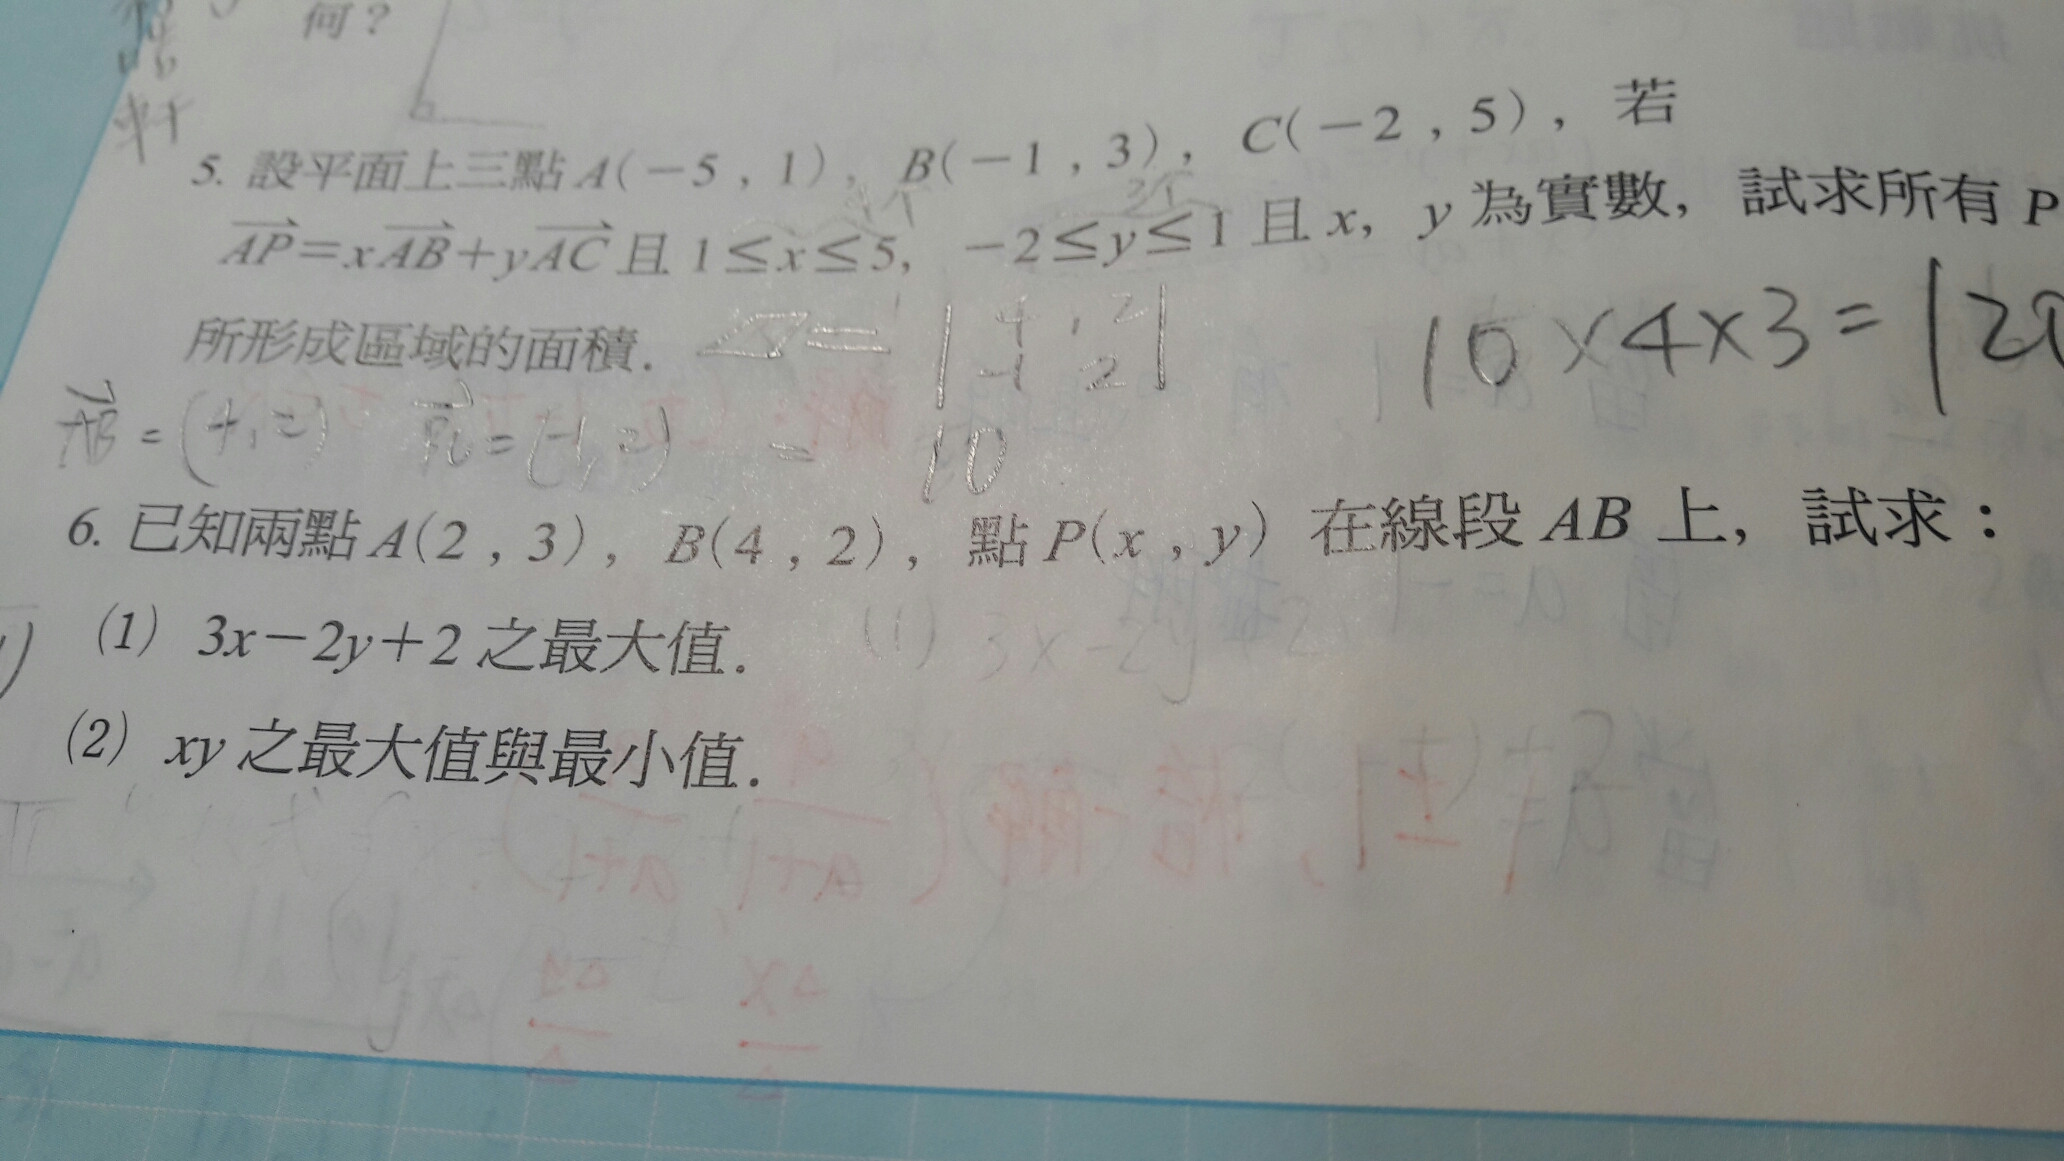 何？
軒
5. 設平面上三點 A(－5，1)，B(－1，3)，C(－2，5)，若
AP＝xAB＋yAC 且 1≤x≤5，－2≤y≤1 且 x，y 為實數，試求所有 P
所形成區域的面積．
▱ = | 4, 2 |
| -1 2 |
10×4×3=120
AB = (4, 2) AC = (-1, 2) = 10
6. 已知兩點 A(2，3)，B(4，2)，點 P(x，y) 在線段 AB 上，試求：
(1) 3x－2y＋2 之最大值．
(1) 3x-2y+2
(2) xy 之最大值與最小值．